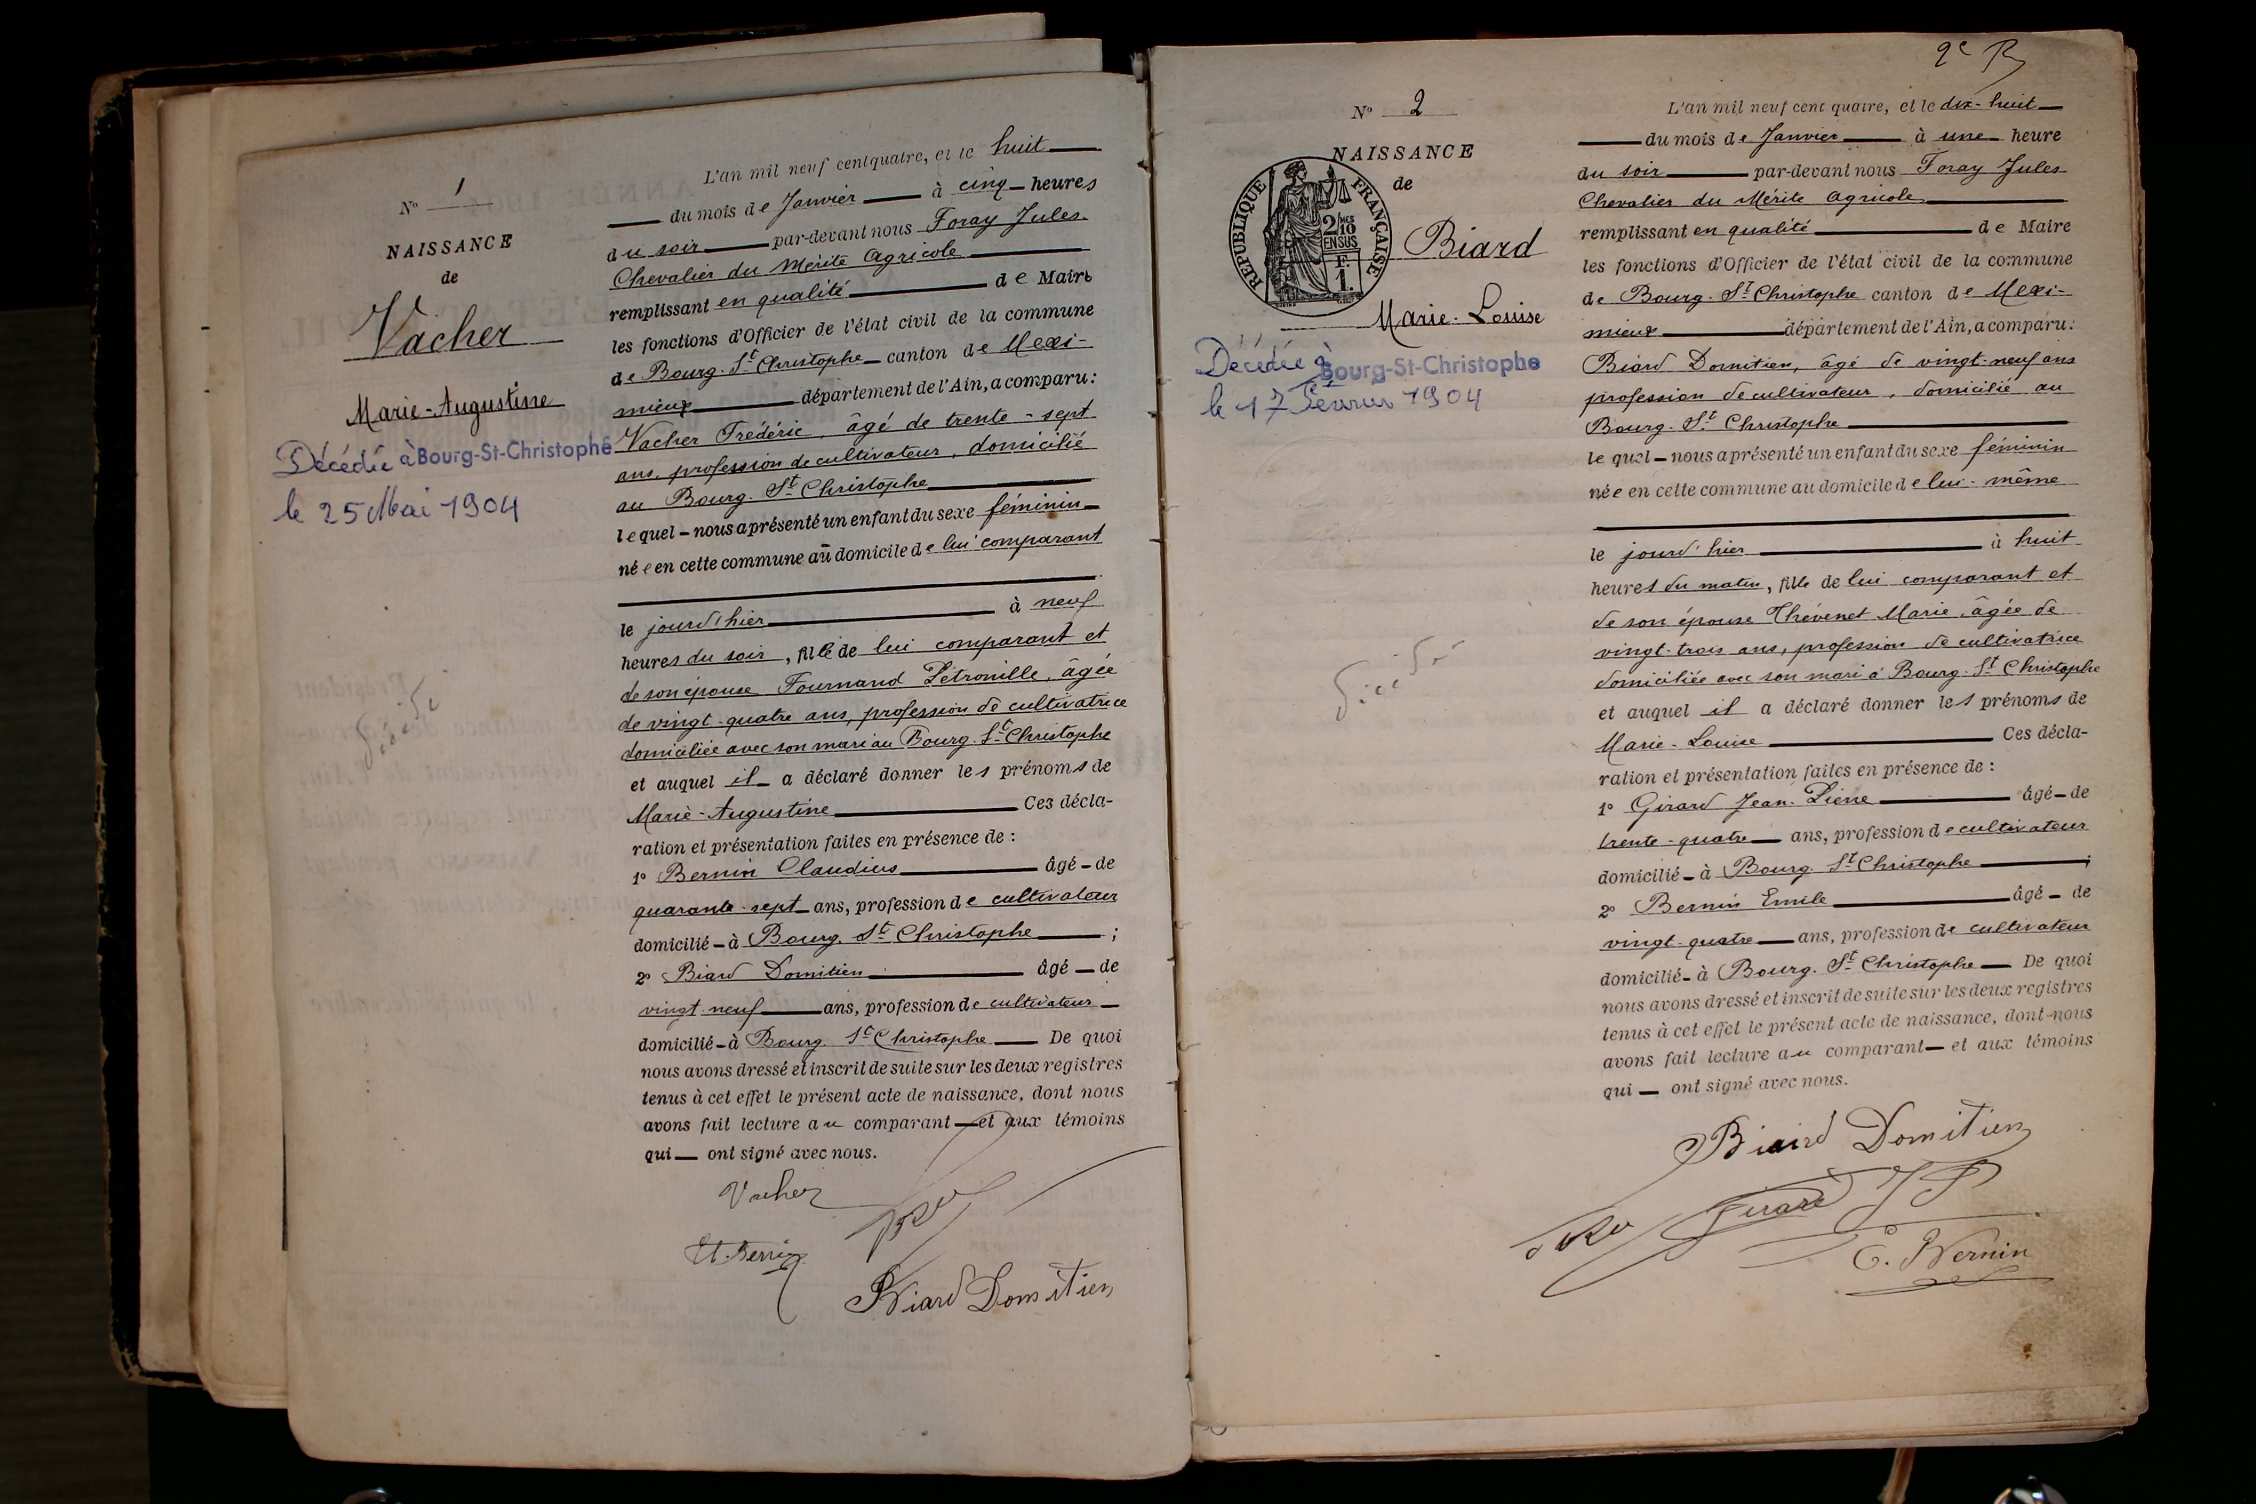 N° 1
NAISSANCE
de
Vacher
Marie-Augustine
Décédée à Bourg-St-Christophe
le 25 Mai 1904
L'an mil neuf cent quatre, et le huit
du mois de Janvier à cinq heures
du soir par-devant nous Foray Jules
Chevalier du Mérite Agricole
remplissant en qualité de Maire
les fonctions d'Officier de l'état civil de la commune
de Bourg-St-Christophe canton de Mexi-
mieux département de l'Ain, a comparu:
Vacher Frédéric, âgé de trente-sept
ans, profession de cultivateur, domicilié
au Bourg-St-Christophe
lequel nous a présenté un enfant du sexe féminin
née en cette commune au domicile de lui comparant
le jourd'hier à neuf
heures du soir, fille de lui comparant et
de son épouse Fournand Pétronille, âgée
de vingt-quatre ans, profession de cultivatrice
domiciliée avec son mari au Bourg-St-Christophe
et auquel il a déclaré donner les prénoms de
Marie-Augustine Ces décla-
ration et présentation faites en présence de :
1° Bernin Claudius âgé de
quarante-sept ans, profession de cultivateur
domicilié à Bourg-St-Christophe ;
2° Biard Domitien âgé de
vingt-neuf ans, profession de cultivateur
domicilié à Bourg St Christophe De quoi
nous avons dressé et inscrit de suite sur les deux registres
tenus à cet effet le présent acte de naissance, dont nous
avons fait lecture au comparant et aux témoins
qui ont signé avec nous.
Vacher
Biard Domitien
2e
N° 2
NAISSANCE
de
RÉPUBLIQUE FRANÇAISE
2/10 EN SUS
F. 1.
Biard
Marie-Louise
Décédée à Bourg-St-Christophe
le 17 Février 1904
L'an mil neuf cent quatre, et le dix-huit
du mois de Janvier à une heure
du soir par-devant nous Foray Jules
Chevalier du Mérite Agricole
remplissant en qualité de Maire
les fonctions d'Officier de l'état civil de la commune
de Bourg-St-Christophe canton de Mexi-
mieux département de l'Ain, a comparu:
Biard Domitien, âgé de vingt-neuf ans
profession de cultivateur, domicilié au
Bourg-St-Christophe
lequel nous a présenté un enfant du sexe féminin
née en cette commune au domicile de lui-même
le jourd'hier à huit
heures du matin, fille de lui comparant et
de son épouse Thévenet Marie, âgée de
vingt-trois ans, profession de cultivatrice
domiciliée avec son mari à Bourg-St-Christophe
et auquel il a déclaré donner les prénoms de
Marie-Louise Ces décla-
ration et présentation faites en présence de :
1° Girard Jean-Pierre âgé de
trente-quatre ans, profession de cultivateur
domicilié à Bourg-St-Christophe ;
2° Bernin Emile âgé de
vingt-quatre ans, profession de cultivateur
domicilié à Bourg-St-Christophe De quoi
nous avons dressé et inscrit de suite sur les deux registres
tenus à cet effet le présent acte de naissance, dont nous
avons fait lecture au comparant et aux témoins
qui ont signé avec nous.
Biard Domitien
Girard J P
E. Bernin